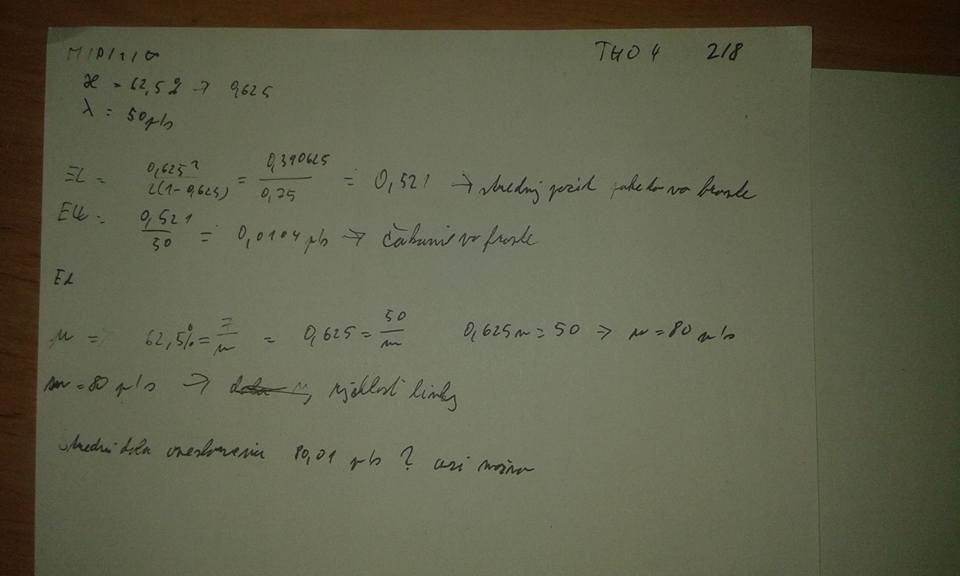 M/D/1/∞ THO 4 2/8
ϰ = 62,5 % → 0,625
λ = 50 p/s
EL = 0,625² / 2(1-0,625) = 0,390625 / 0,75 = 0,521 → stredný počet paketov vo fronte
EW = 0,521 / 50 = 0,0104 p/s → čakanie vo fronte
EL
μ = 62,5% = λ/μ = 0,625 = 50/m 0,625m = 50 → μ = 80 p/s
m = 80 p/s → rýchlosť linky
stredná doba 80,01 p/s ? asi možno